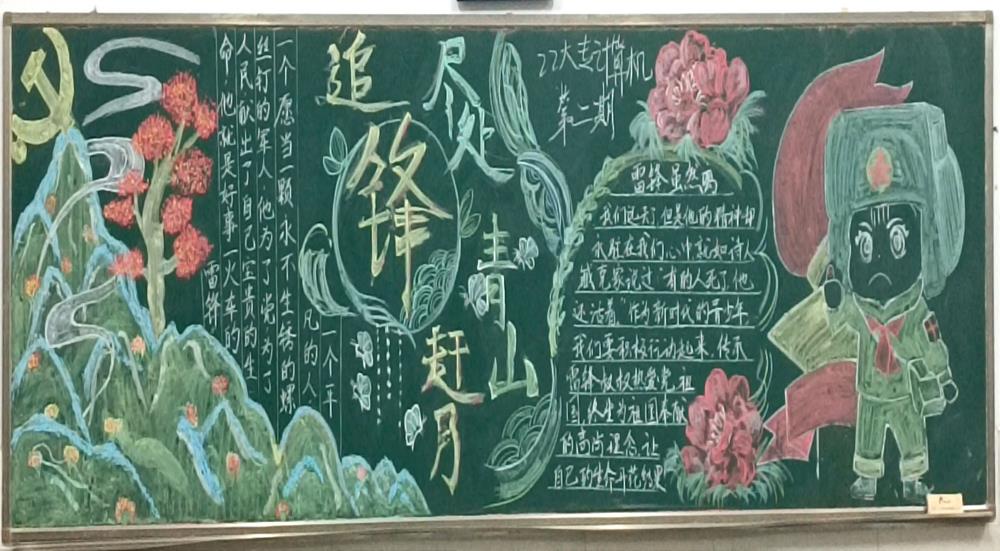 一个平
凡的人
一个愿当一颗永不生锈的螺
丝钉的军人,他为了党为了
人民献出了自己宝贵的生
命,他就是好事一火车的
雷锋
追锋赶月
尺处青山
22大专计算机
第二期
雷锋虽然离
我们远去了但是他的精神却
永驻在我们心中就如诗人
臧克家说过“有的人死了他
还活着”作为新时代的青少年
我们要积极行动起来,传承
雷锋叔叔热爱党、祖
国,终生为祖国奉献
的高尚理念,让
自己的生命开花结果